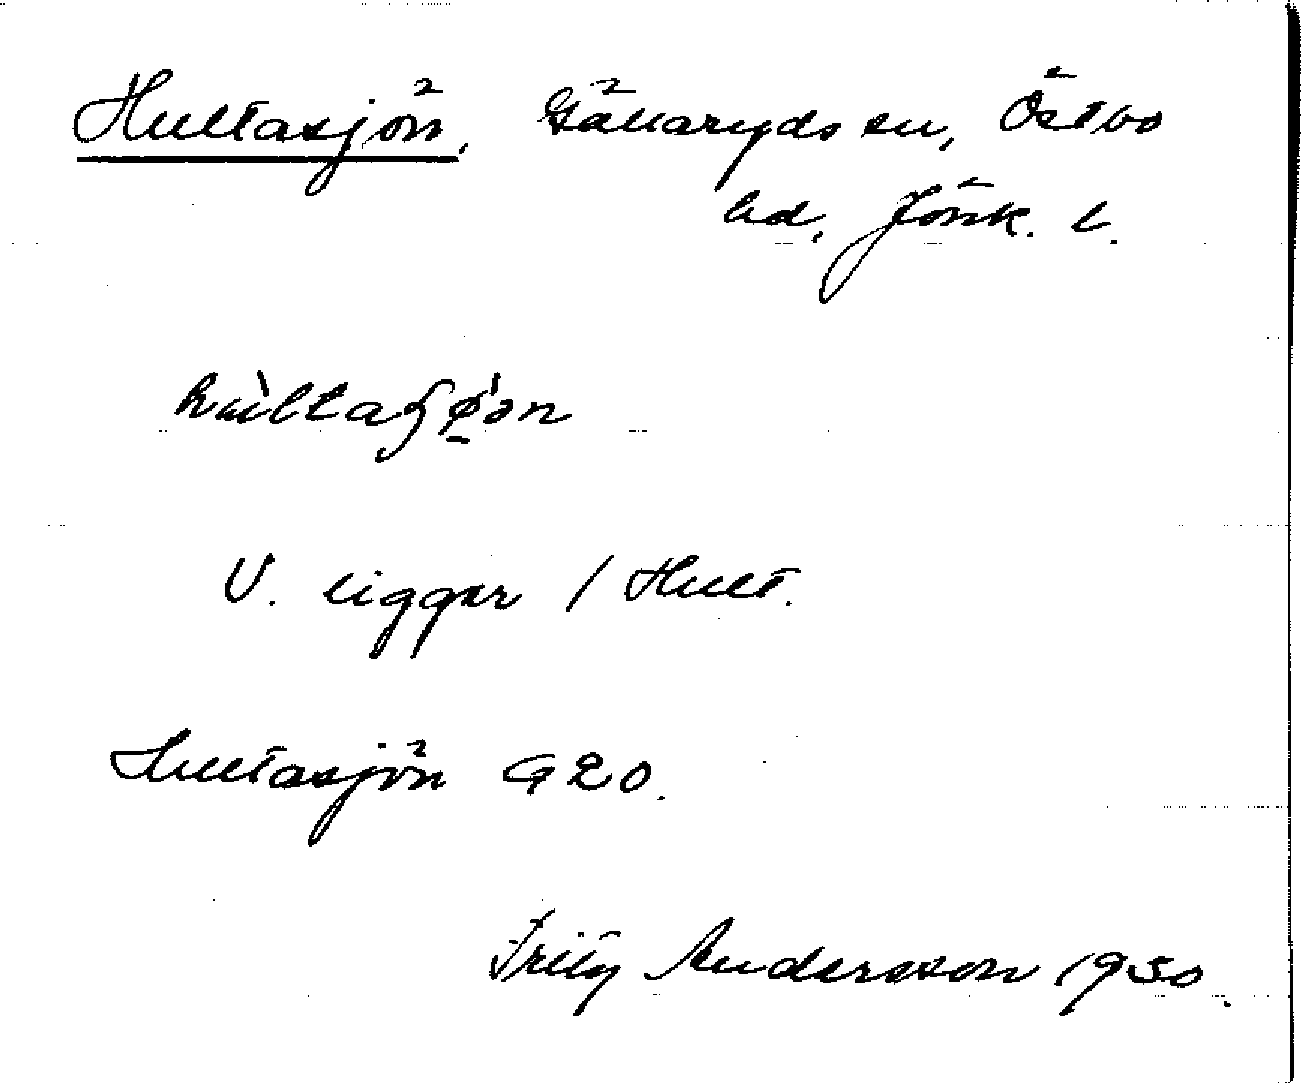 Hultasjön, Gällaryds sn, Östbo
hd, Jönk. l.
V. ligger i Hult.
Hultasjön G20.
Fritz Andersson 1930.